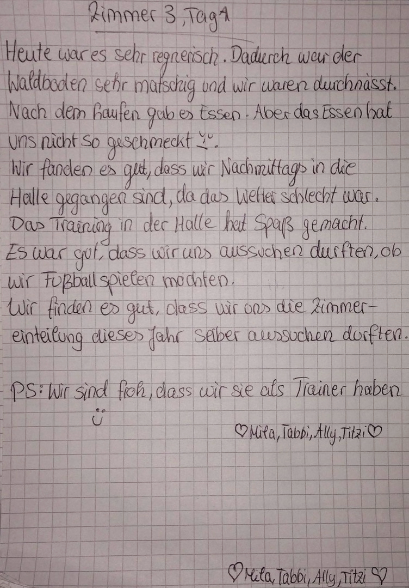 Zimmer 3, Tag 1
Heute war es sehr regnerisch. Dadurch war der
Waldboden sehr matschig und wir waren durchnässt.
Nach dem laufen gab es Essen. Aber das Essen hat
uns nicht so geschmeckt.
Wir fanden es gut, dass wir Nachmittags in die
Halle gegangen sind, da das Wetter schlecht war.
Das Training in der Halle hat Spaß gemacht.
Es war gut, dass wir uns aussuchen durften, ob
wir Fußball spielen möchten.
Wir finden es gut, dass wir uns die Zimmer-
einteilung dieses Jahr selber aussuchen durften.
PS: Wir sind froh, dass wir sie als Trainer haben
:)
♡Mila, Tabbi, Ally, Titzi♡
♡Mila, Tabbi, Ally, Titzi♡